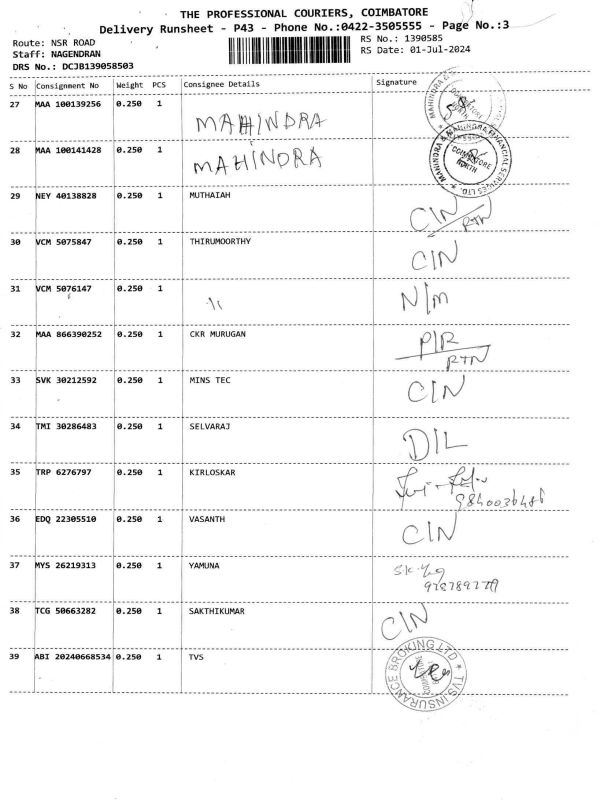 THE PROFESSIONAL COURIERS, COIMBATORE
Delivery Runsheet - P43 - Phone No.:0422-3505555 - Page No.:3
Route: NSR ROAD
RS No.: 1390585
Staff: NAGENDRAN
RS Date: 01-Jul-2024
DRS No.: DCJB139058503
S No Consignment No Weight PCS Consignee Details Signature
27 MAA 100139256 0.250 1 MAHINDRA
28 MAA 100141428 0.250 1 MAHINDRA
MAHINDRA & MAHINDRA FINANCIAL SERVICES LTD.
COIMBATORE NORTH
29 NEY 40138828 0.250 1 MUTHAIAH CIN
RTN
30 VCM 5075847 0.250 1 THIRUMOORTHY CIN
31 VCM 5076147 0.250 1 N/m
32 MAA 866390252 0.250 1 CKR MURUGAN P/R
RTN
33 SVK 30212592 0.250 1 MINS TEC CIN
34 TMI 30286483 0.250 1 SELVARAJ D/L
35 TRP 6276797 0.250 1 KIRLOSKAR
36 EDQ 22305510 0.250 1 VASANTH CIN
37 MYS 26219313 0.250 1 YAMUNA
38 TCG 50663282 0.250 1 SAKTHIKUMAR CIN
39 ABI 20240668534 0.250 1 TVS
TVS INSURANCE BROKING LTD